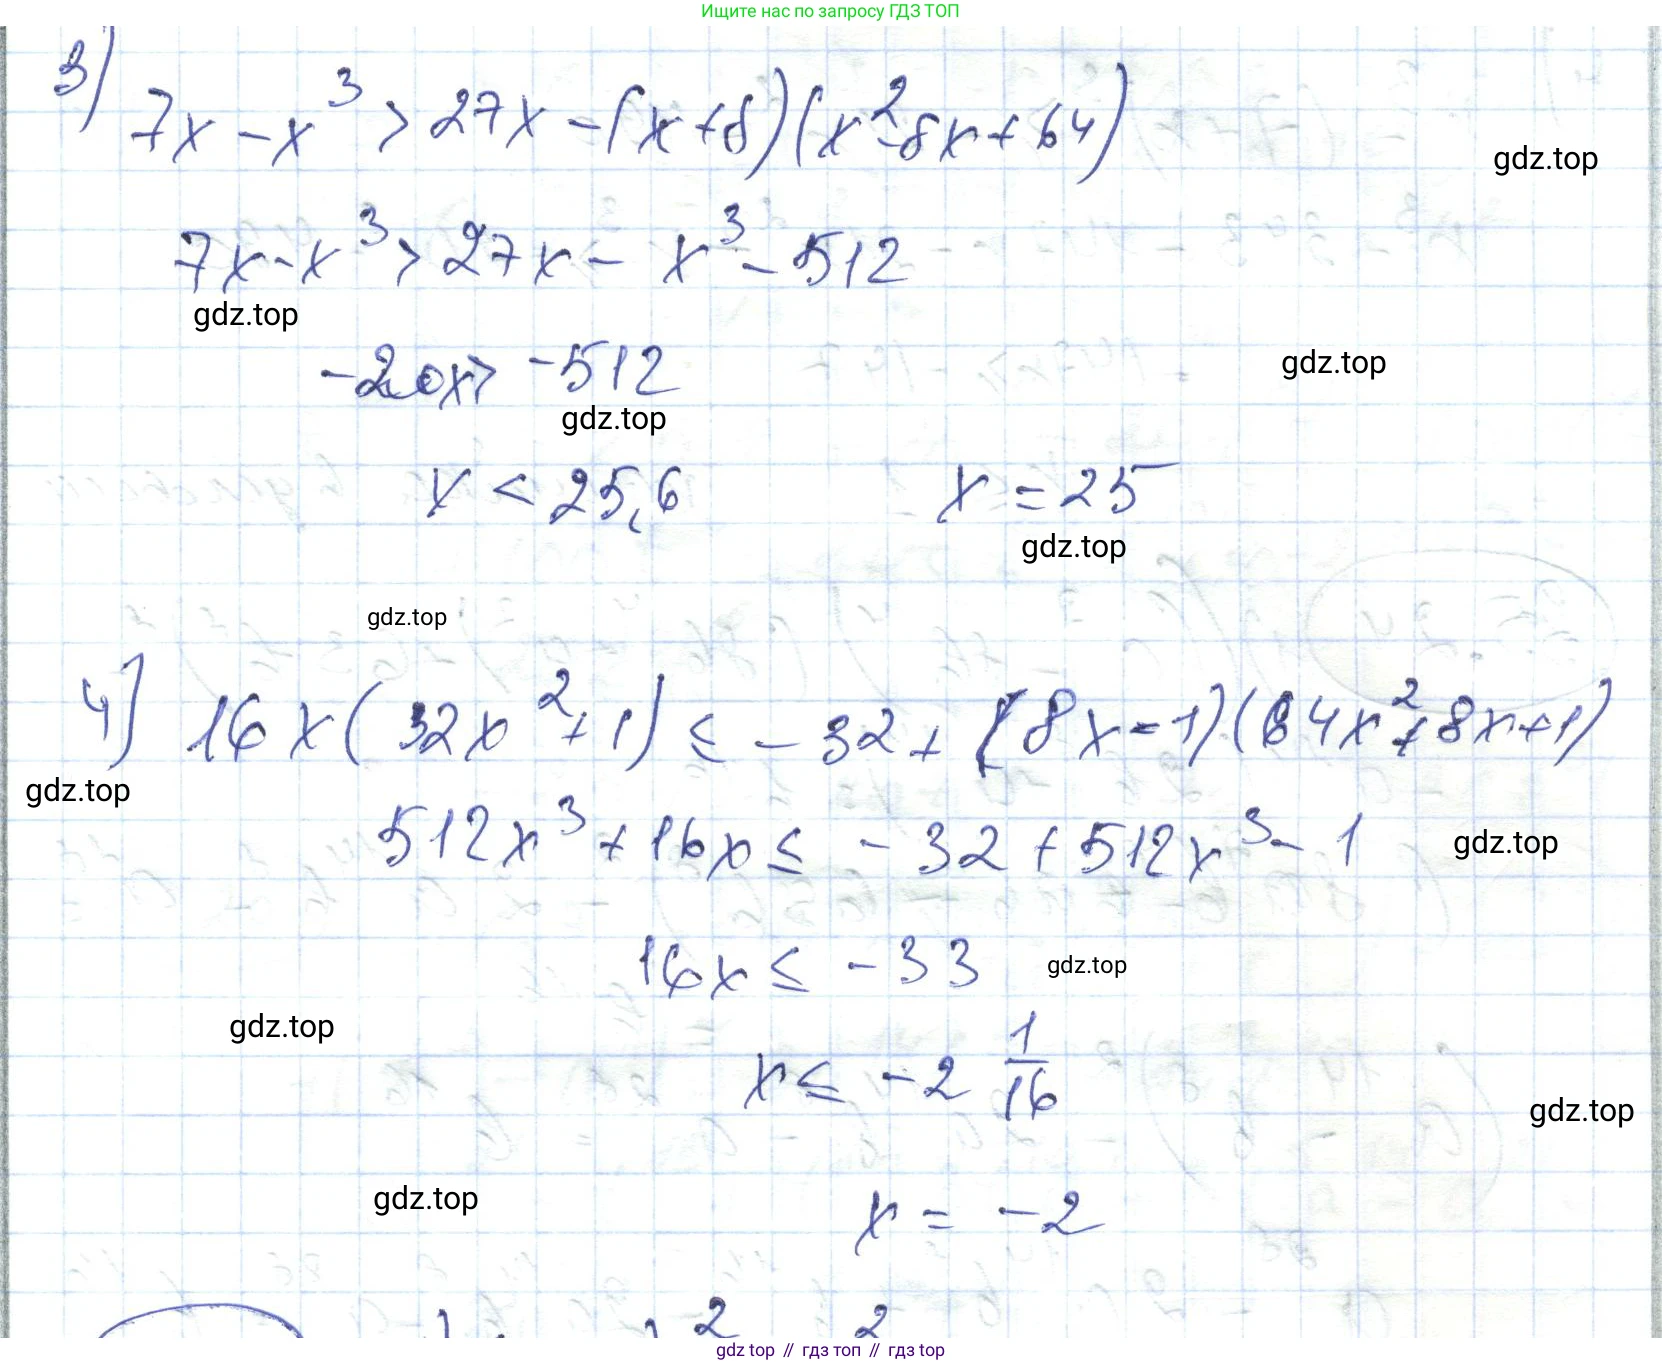 Ищите нас по запросу ГДЗ ТОП
3) 7x - x³ > 27x - (x+8)(x² - 8x + 64)
gdz.top
7x - x³ > 27x - x³ - 512
gdz.top
-20x > -512
gdz.top
gdz.top
x < 25,6 x = 25
gdz.top
gdz.top
4) 16x(32x² + 1) ≤ -32 + (8x - 1)(64x² + 8x + 1)
gdz.top
512x³ + 16x ≤ -32 + 512x³ - 1
gdz.top
16x ≤ -33
gdz.top
gdz.top
x ≤ -2 1/16
gdz.top
gdz.top
x = -2
gdz top // гдз топ // гдз top